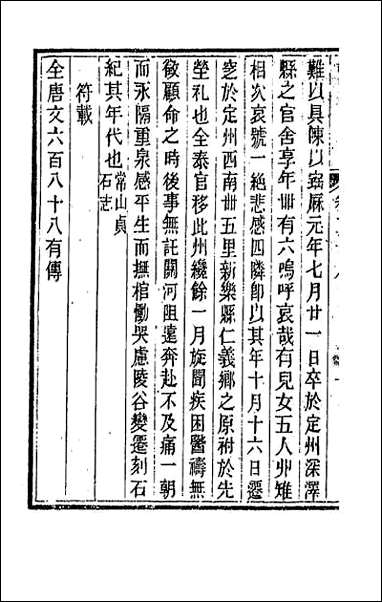 難以具陳以寶厯元年七月廿一日卒於定州深澤
縣之官舍享年卌有六嗚呼哀哉有兒女五人丱雉
相次哀號一絶悲感四隣卽以其年十月十六日遷
窆於定州西南卅五里新樂縣仁義鄉之原祔於先
塋孔也全泰官移此州纔餘一月旋聞疾困醫禱無
徵顧命之時後事無託關河阻遠奔赴不及痛一朝
而永隔重泉感平生而撫棺慟哭慮陵谷變遷刻石
紀其年代也常山貞石志
符載
全唐文六百八十八有傳